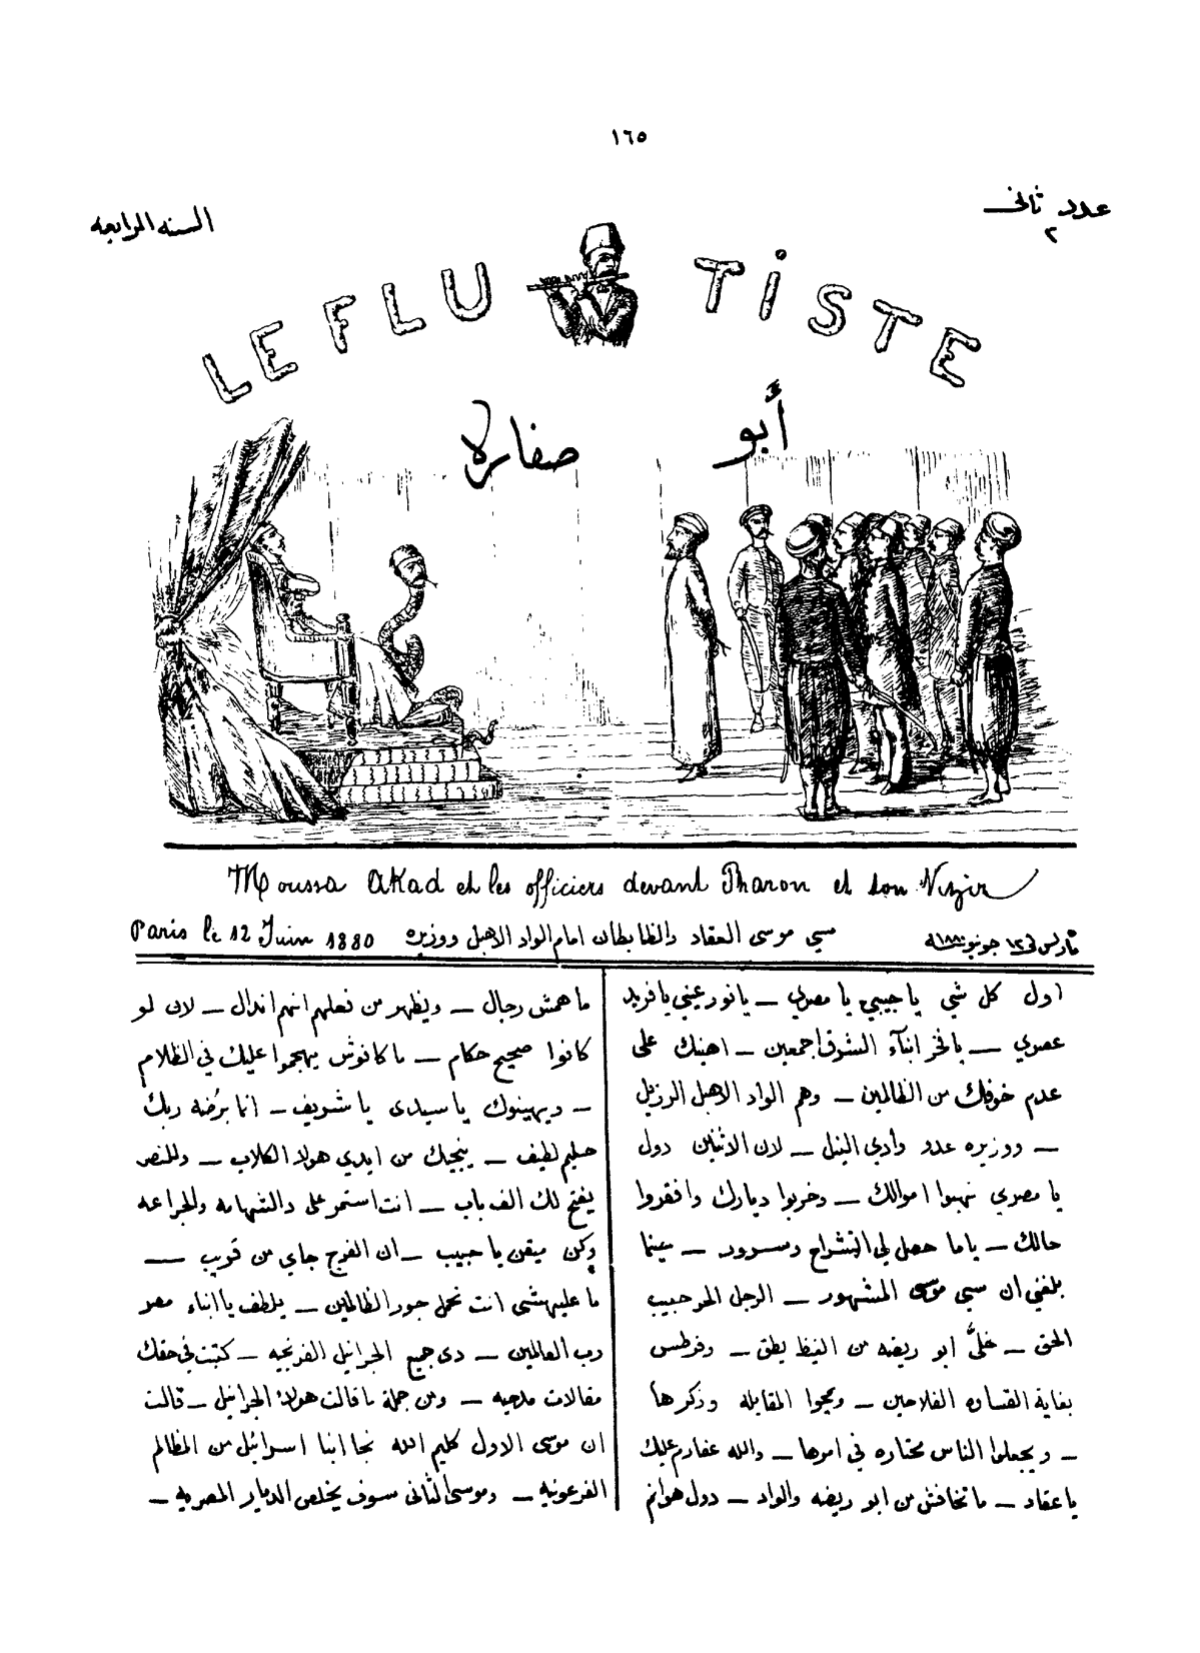 ١٦٥
عدد ثانى
٢
السنه الرابعه
LE FLUTISTE
أبو صفارة
Moussa Akad et les officiers devant Pharon et son Vizir
باريس فى ١٢ جونيو ١٨٨٠
سي موسى العقاد والظابطان امام الواد الاهبل ووزيره
Paris le 12 Juin 1880
اول كل شي يا حبيبي يا مصري — يا نور عيني يا فريد
عصري — يا فخر ابنآء الشرق اجمعين — اهنيك على
عدم خوفك من الظالمين — وهم الواد الاهبل الرزيل
— ووزيره عدو وأدي النيل — لان الاثنين دول
يا مصري نهبوا اموالك — وخربوا ديارك وافقروا
حالك — ياما حصل لي انشراح وسرور — حينما
بلغني ان سي موسى المشهور — الرجل الحر حبيب
الحق — خلىّ ابو ريضه من الغيظ يطق — وفرطس
بغاية القساوه الفلاحين — ويمحوا المقابله وذكرها
— ويجعلوا الناس محتاره في امرها — والله عفارم عليك
يا عقاد — ما تخافش من ابو ريضه والواد — دول هوانم
ما همش رجال — ويظهر من فعلهم انهم اندال — لان لو
كانوا صحيح حكام — ما كانوش يهجموا عليك في الظلام
— ويهينوك يا سيدى يا شريف — انما برُضه ربك
حليم لطيف — ينجيك من ايدي هولاء الكلاب — وللنصر
يفتح لك الف باب — انت استمر على دالشهامه والجراعه
وكن ميقن يا حبيب — ان الفرج جاي من قريب —
ما عليهشى انت تحمل جور الظالمين — يلطف يا ابناء مصر
رب العالمين — دى جميع الجرانيل الفرنجيه — كتبت في حقك
مقالات مدحيه — ومن جملة ما قالت هولاء الجرانيل — قالت
ان موسى الاول كليم الله نجا ابنا اسرائيل من المظالم
الفرعونيه — وموسى الثانى سوف يخلص الديار المصريه —